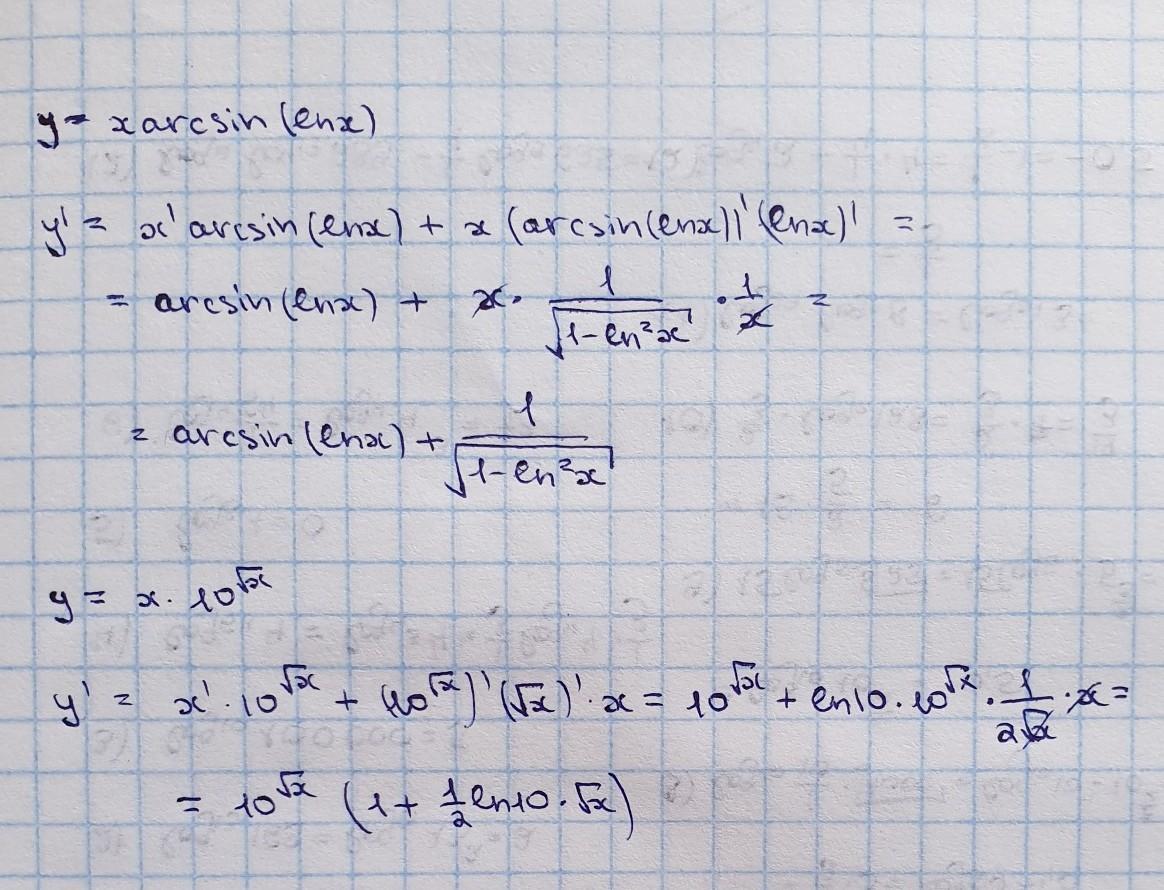 y = x arcsin (ln x)
y' = x' arcsin (ln x) + x (arcsin(ln x))' (ln x)' =
= arcsin (ln x) + x · 1/√(1-ln²x) · 1/x =
= arcsin (ln x) + 1/√(1-ln²x)
y = x · 10^√x
y' = x' · 10^√x + (10^√x)' (√x)' · x = 10^√x + ln10 · 10^√x · 1/(2√x) · x =
= 10^√x (1 + 1/2 ln10 · √x)